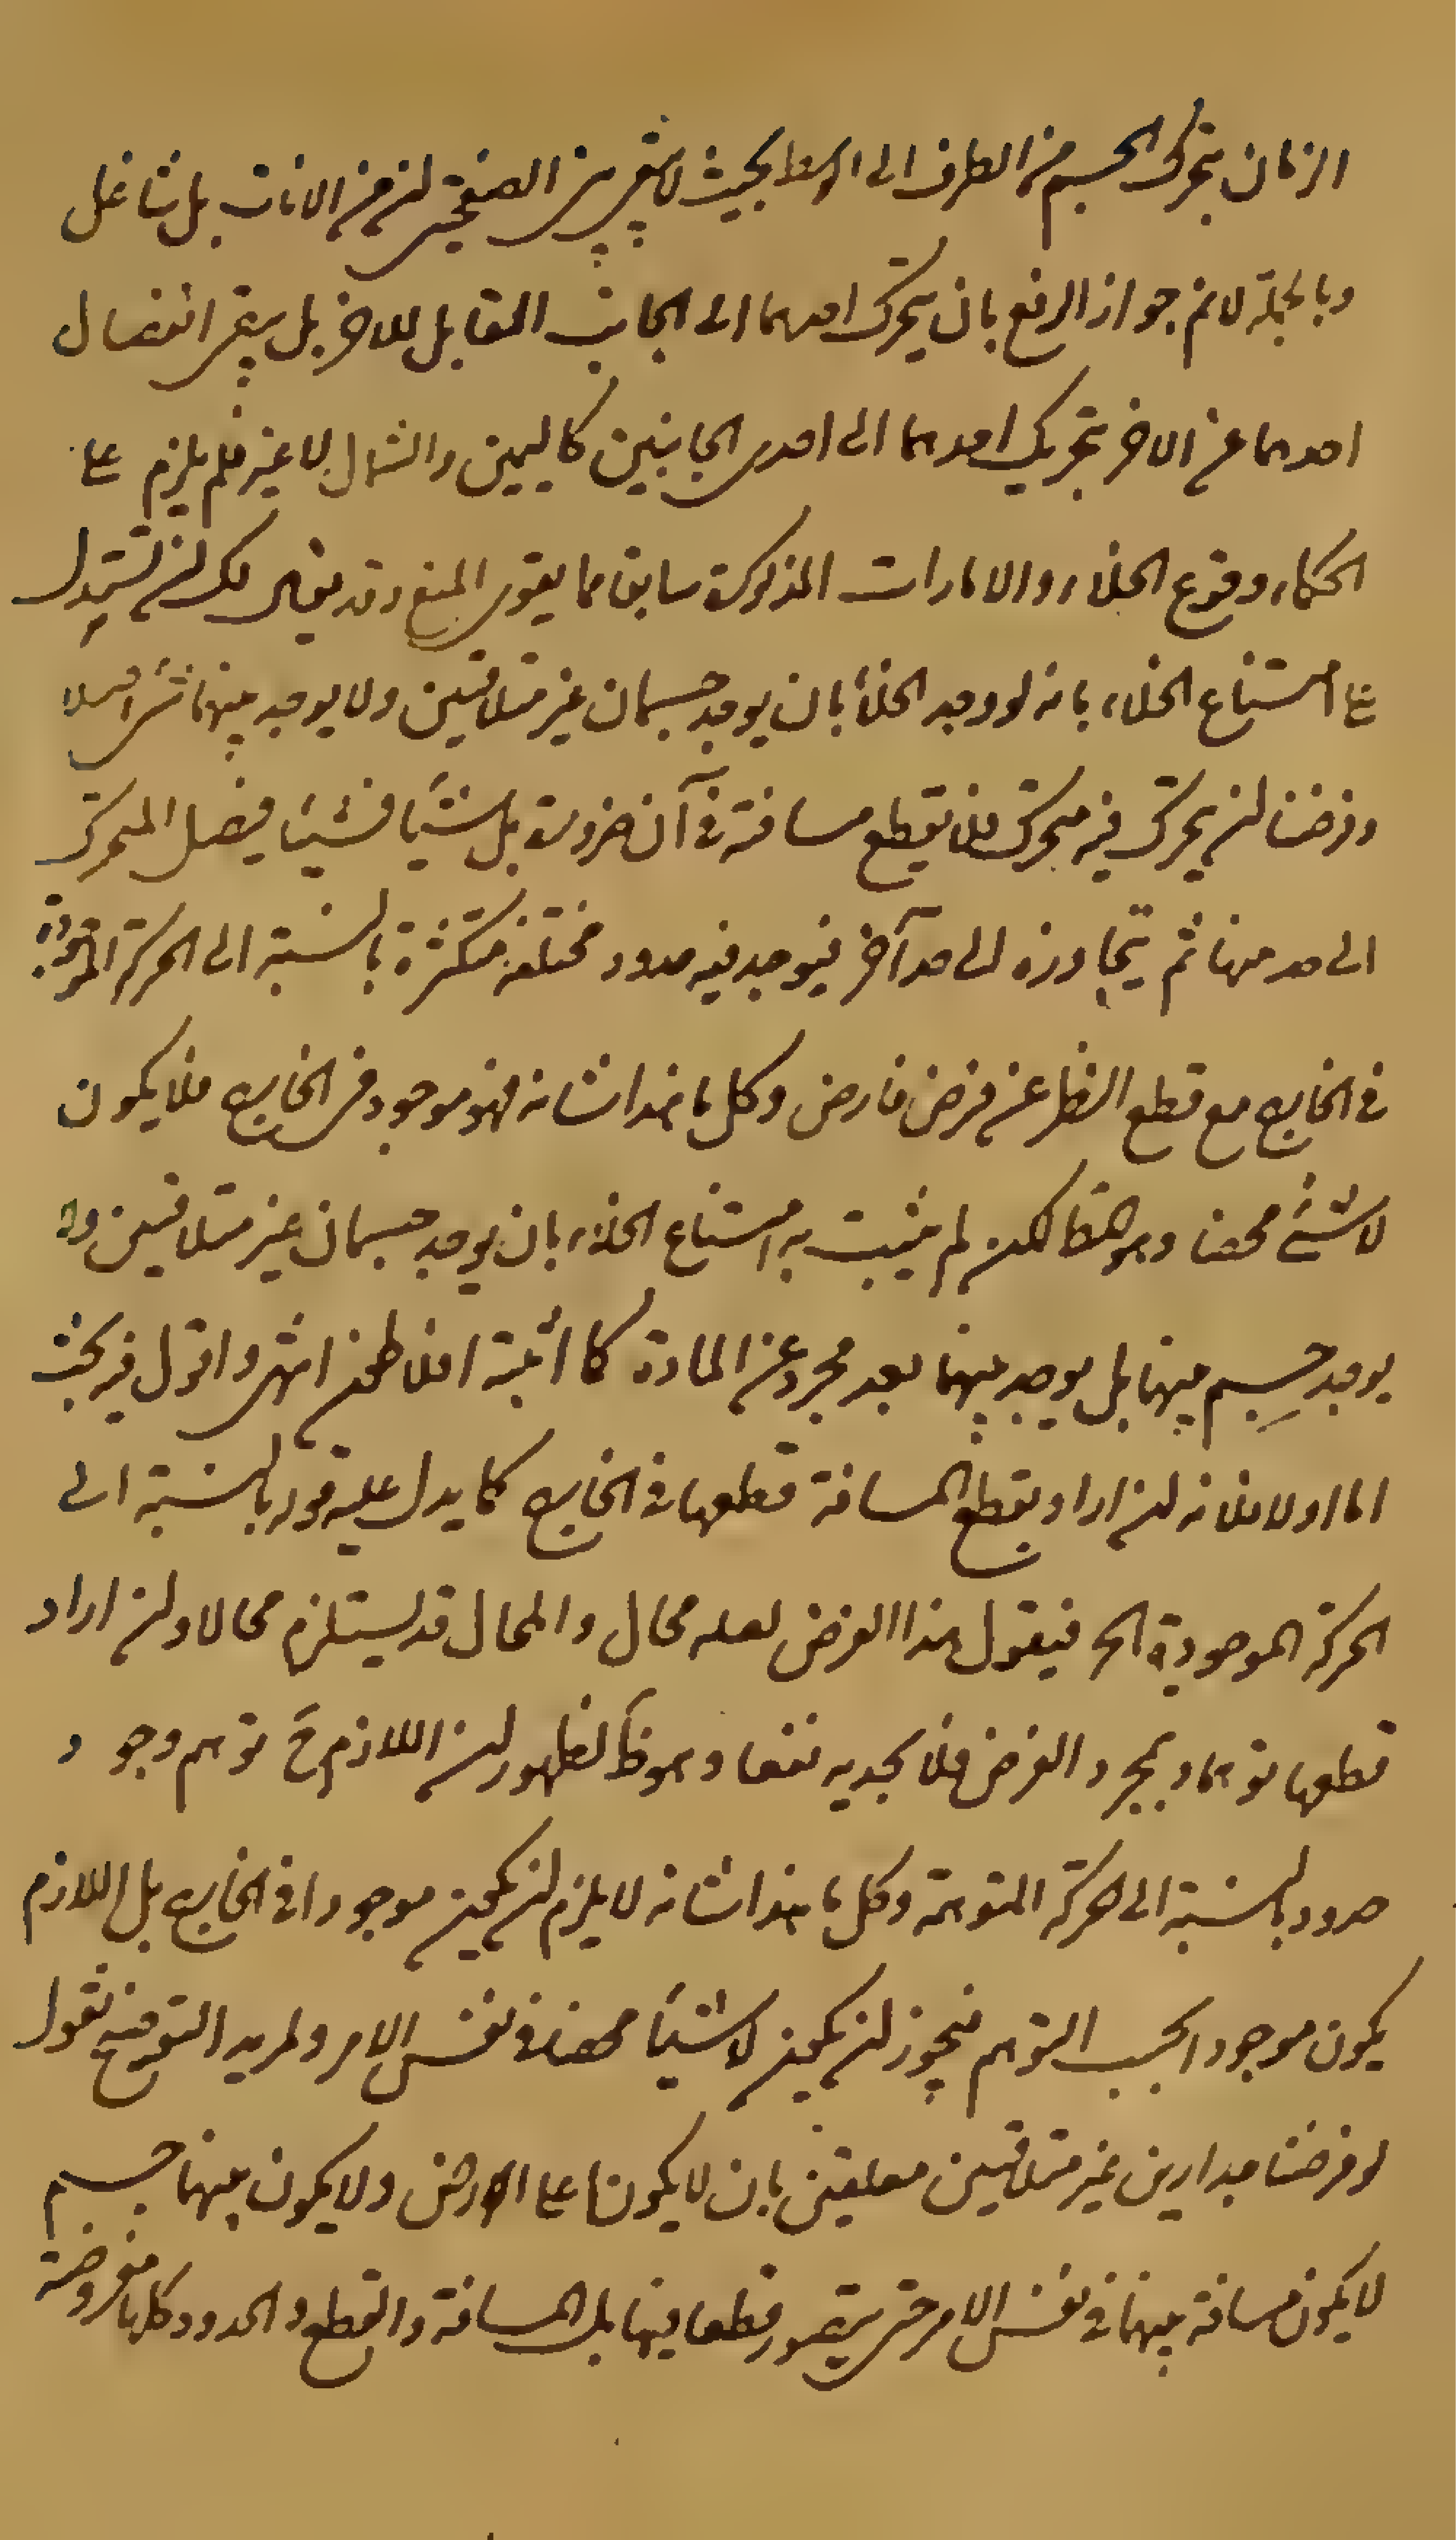 الزمان يتحرك الجسم من الطرف الى الوسط بحيث لا يبقى بين الصفحتين من الانات بل شاغل
وبالجملة لانم جواز الرفع بان يتحرك احدهما الى الجانب المقابل للاخر بل يبقى انفصال
احدهما عن الاخر بتحريك احدهما الى احدى الجانبين كاليمين والشمال لا غير فلم يلزم على
الحكماء وقوع الخلاء والامارات المذكورة سابقا مما يقوى المنع وقد يقال لك ان تستدل
على امتناع الخلاء بانه لو وجد الخلأ بان يوجد جسمان غير متلاقيين ولا يوجد بينهما شئ اصلا
وفرضنا ان يتحرك فيه متحرك فلا يقطع مسافته فى آن ضرورة بل شيئا فشيئا فيصل المتحرك
الى حد منها ثم يتجاوزه الى حد آخر فيوجد فيه حدود مختلفة متكثرة بالنسبة الى الحركة الموجودة
فى الخارج مع قطع النظر عن فرض فارض وكل ما هذا شانه فهو موجود فى الخارج فلا يكون
لا شئ محضا وهو هكذا لكن لم يثبت به امتناع الخلاء بان يوجد جسمان غير متلاقيين ولا
يوجد جسم بينهما بل يوجد بينهما بعد مجرد عن المادة كما أثبته افلاطون انتهى واقول فيه بحث
اما اولا فلانه ان اراد بقطع المسافة قطعها فى الخارج كما يدل عليه قوله بالنسبة الى
الحركة الموجودة الخ فيقول هذا الفرض لعله محال والمحال قد يستلزم محالا وان اراد
قطعها توهما وبمجرد الفرض فلا يجديه نفعا وهو ظ لظهور ان اللازم ح توهم وجود
حدود بالنسبة الى الحركة المتوهمة وكل ما هذا شانه لا يلزم ان يكون موجودا فى الخارج بل اللازم
يكون موجودا بحسب التوهم فيجوز ان يكون لا شيئا محضا فى نفس الامر ولمزيد التوضيح نقول
لو فرضنا جدارين غير متلاقيين معلقين بان لا يكونا على الارض ولا يكون بينهما جسم
لا يكون مسافة بينهما فى نفس الامر حتى يتصور قطعا بينهما بل المسافة والقطع والحدود كلها مفروضة